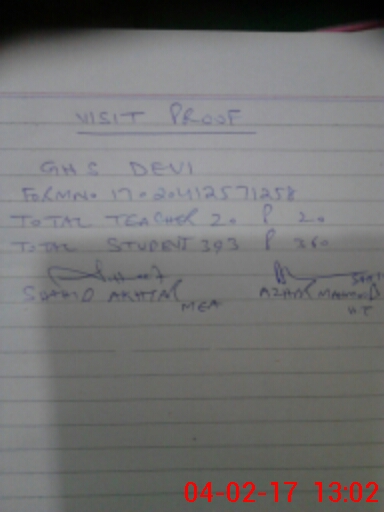 VISIT PROOF
GHS DEVI
FORMNO 17020412571258
TOTAL TEACHER 20 P 20
TOTAL STUDENT 393 P 360
SHAHID AKHTAR AZHAR MAHMOOD
MEA H T
04-02-17 13:02